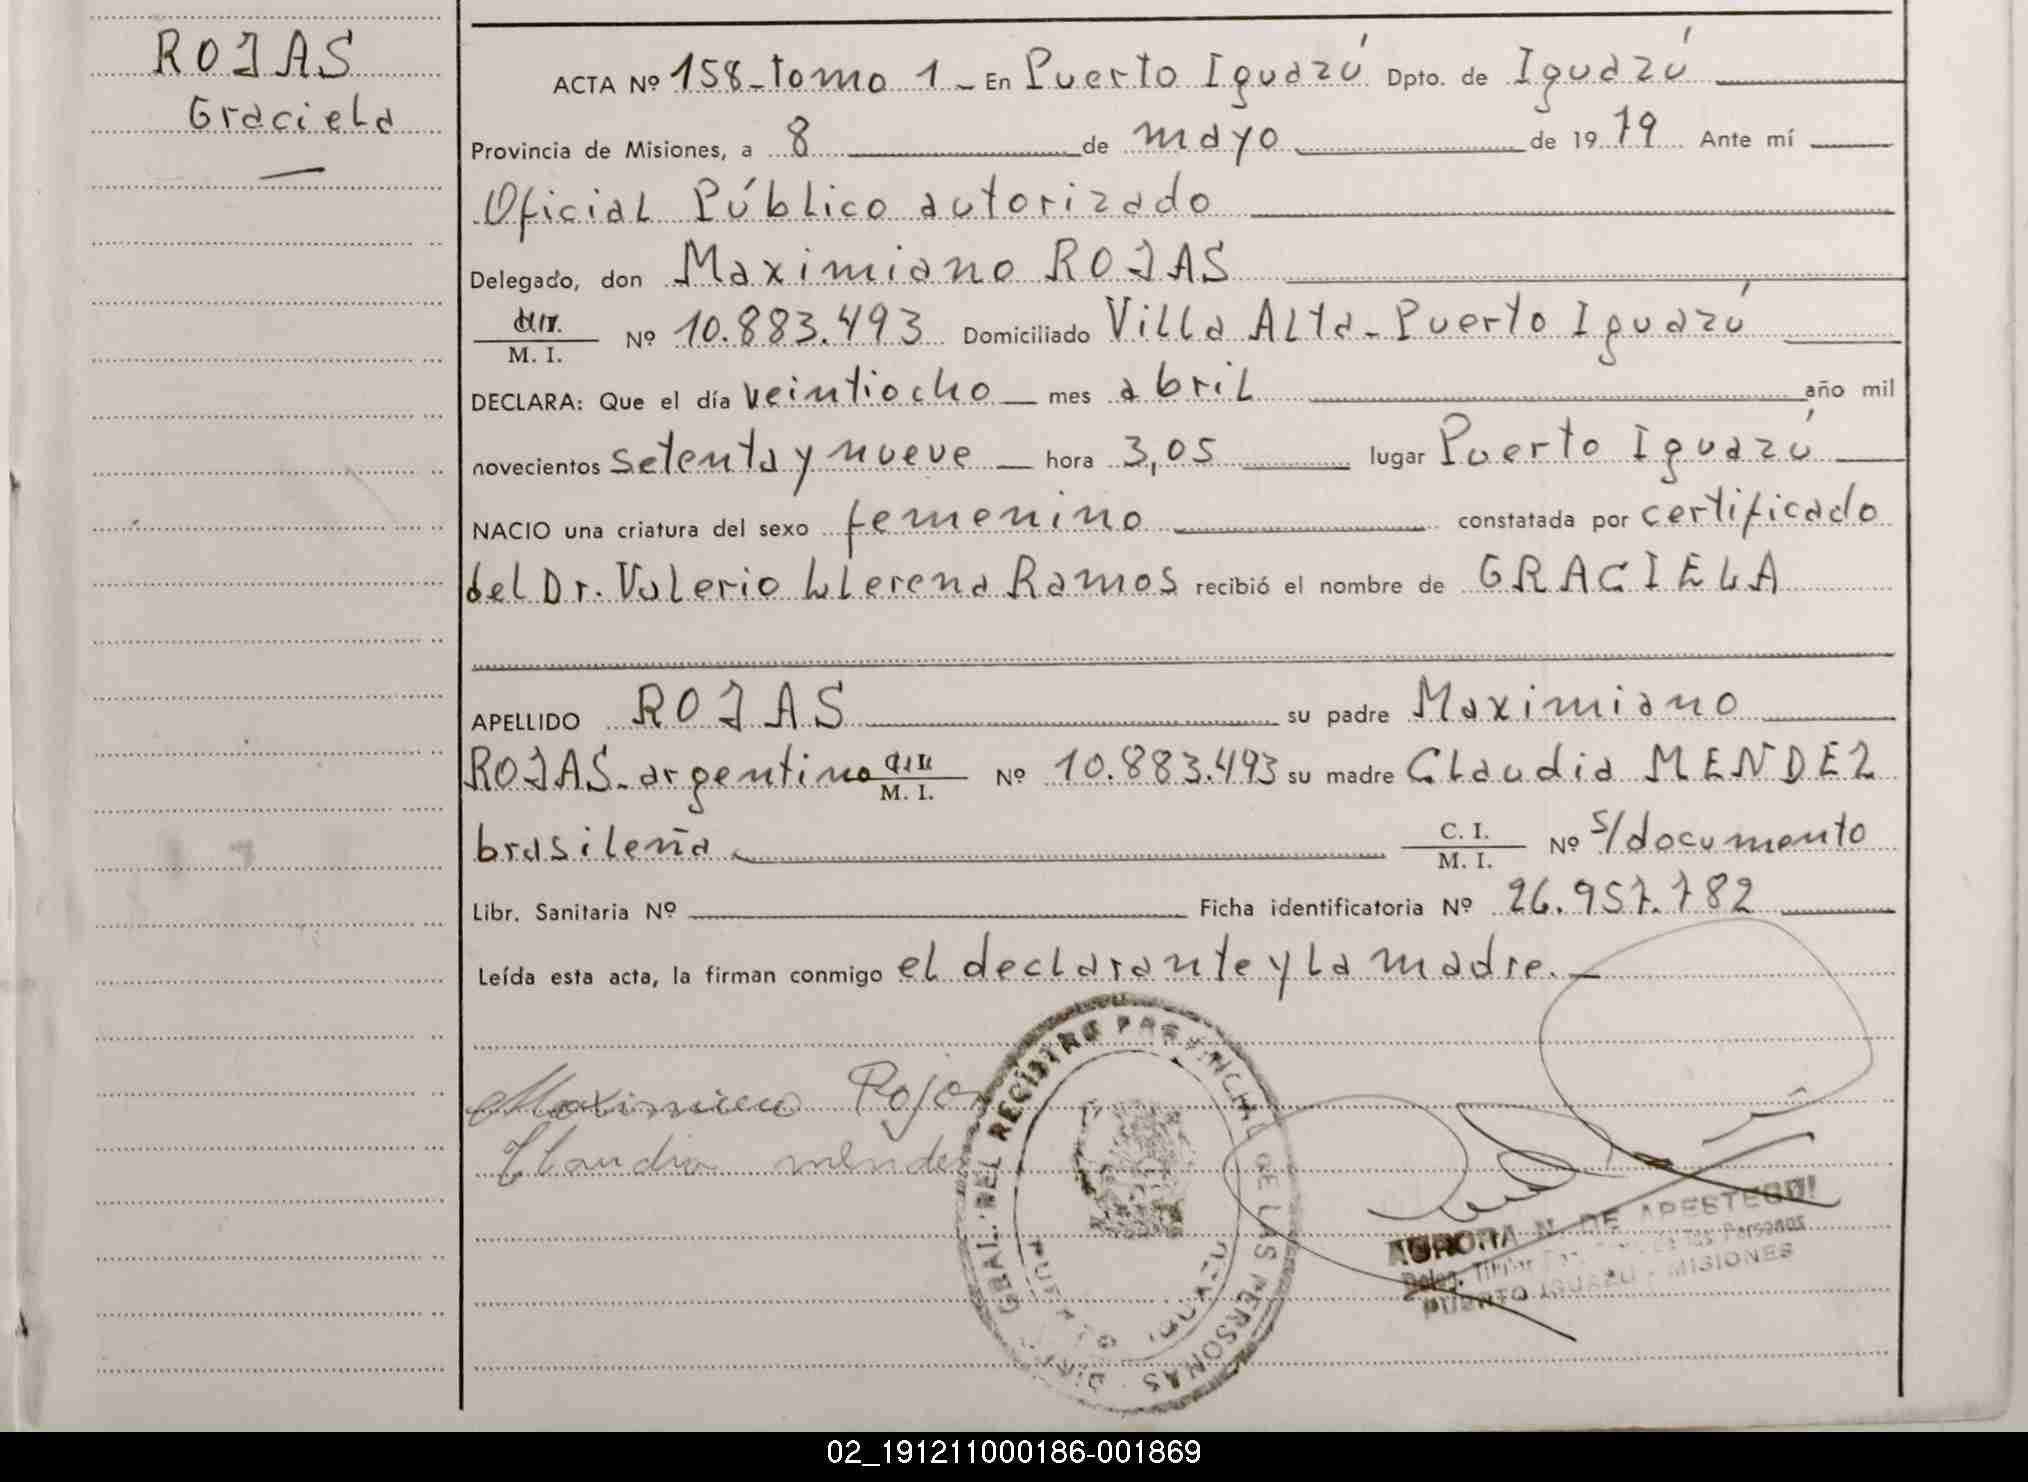 ROJAS
Graciela
ACTA Nº 158-tomo 1- En Puerto Iguazú Dpto. de Iguazú
Provincia de Misiones, a 8 de mayo de 1979 Ante mí
Oficial Público autorizado
Delegado, don Maximiano ROJAS
M. I. Nº 10.883.493 Domiciliado Villa Alta-Puerto Iguazú
DECLARA: Que el día veintiocho mes abril año mil
novecientos setenta y nueve hora 3,05 lugar Puerto Iguazú
NACIO una criatura del sexo femenino constatada por certificado
del Dr. Valerio Llerena Ramos recibió el nombre de GRACIELA
APELLIDO ROJAS su padre Maximiano
ROJAS-argentino M. I. Nº 10.883.493 su madre Claudia MENDEZ
brasileña C. I. M. I. Nº s/documento
Libr. Sanitaria Nº Ficha identificatoria Nº 26.957.782
Leída esta acta, la firman conmigo el declarante y la madre.-
Rojas
Claudia mendez
DIR. GRAL. DEL REGISTRO PROVINCIAL DE LAS PERSONAS
PUERTO IGUAZU
AURORA N. DE APESTEGUI
Deleg. Titular las Personas
PUERTO IGUAZU - MISIONES
02_191211000186-001869